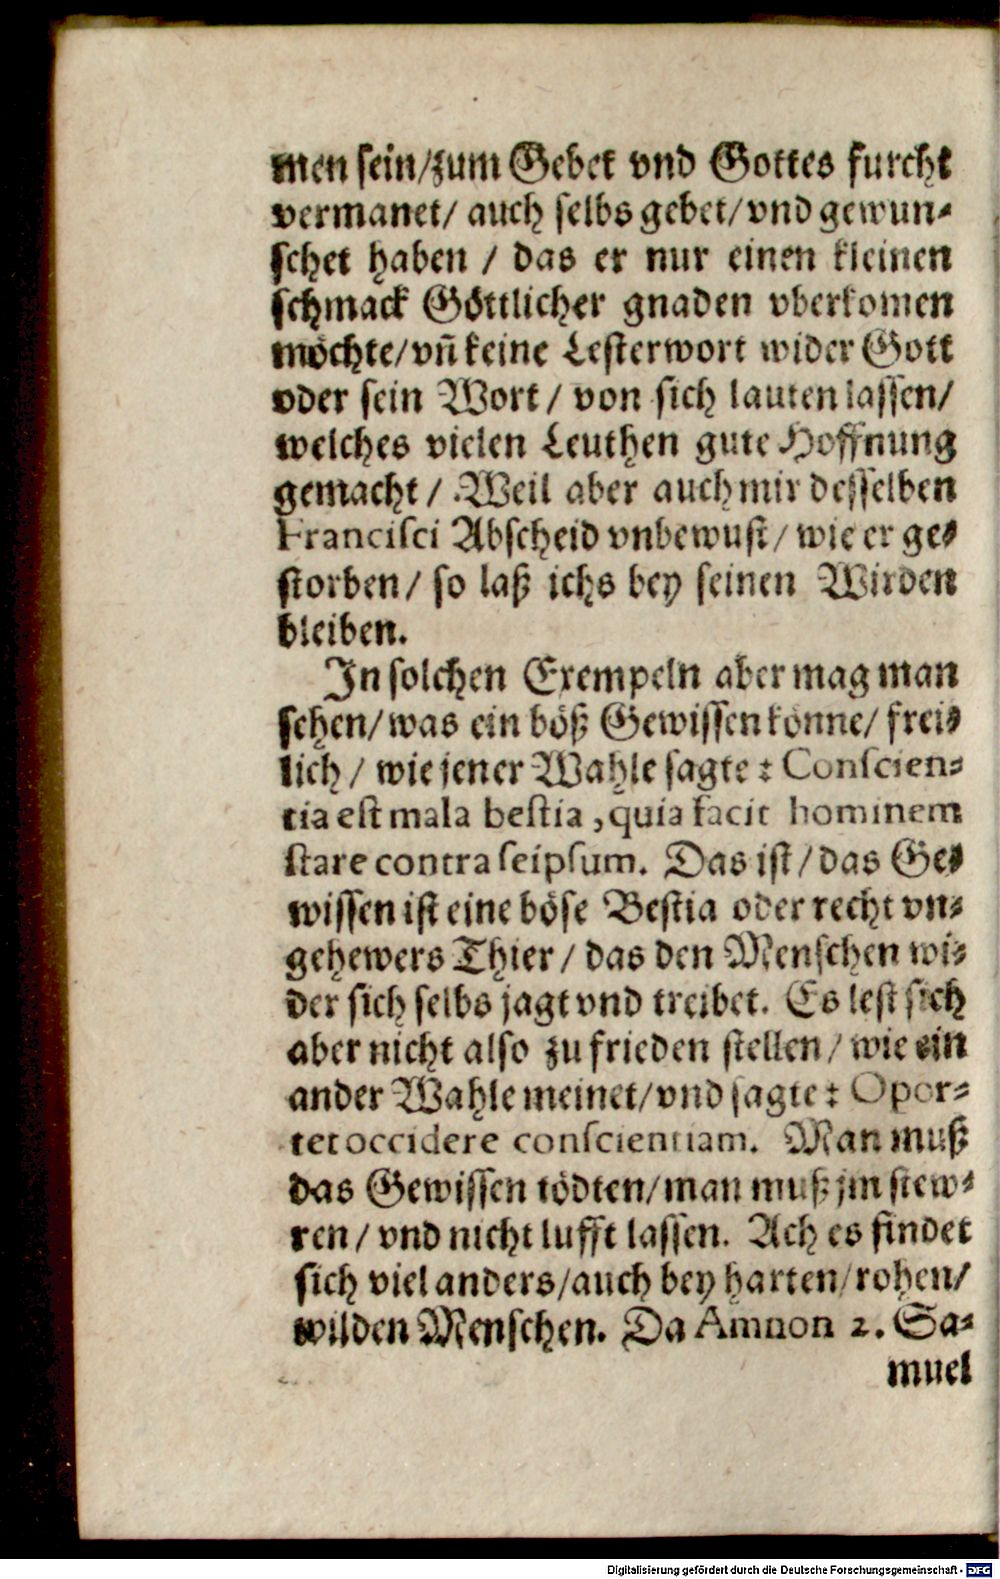 men sein/zum Gebet vnd Gottes furcht
vermanet/ auch selbs gebet/vnd gewun⸗
schet haben / das er nur einen kleinen
schmack Göttlicher gnaden vberkomen
möchte/vn̄ keine Lesterwort wider Gott
oder sein Wort / von sich lauten lassen/
welches vielen Leuthen gute Hoffnung
gemacht / Weil aber auch mir desselben
Francisci Abscheid vnbewust/ wie er ge⸗
storben/ so laß ichs bey seinen Wirden
bleiben.
In solchen Exempeln aber mag man
sehen/was ein böß Gewissen könne/ frei⸗
lich / wie jener Wahle sagte : Conscien⸗
tia est mala bestia, quia facit hominem
stare contra seipsum. Das ist / das Ge⸗
wissen ist eine böse Bestia oder recht vn⸗
gehewers Thier / das den Menschen wi⸗
der sich selbs jagt vnd treibet. Es lest sich
aber nicht also zu frieden stellen / wie ein
ander Wahle meinet/vnd sagte : Opor⸗
tet occidere conscientiam. Man muß
das Gewissen tödten/man muß jm stew⸗
ren / vnd nicht lufft lassen. Ach es findet
sich viel anders/auch bey harten/rohen/
wilden Menschen. Da Amnon 2. Sa⸗
muel
Digitalisierung gefördert durch die Deutsche Forschungsgemeinschaft - DFG